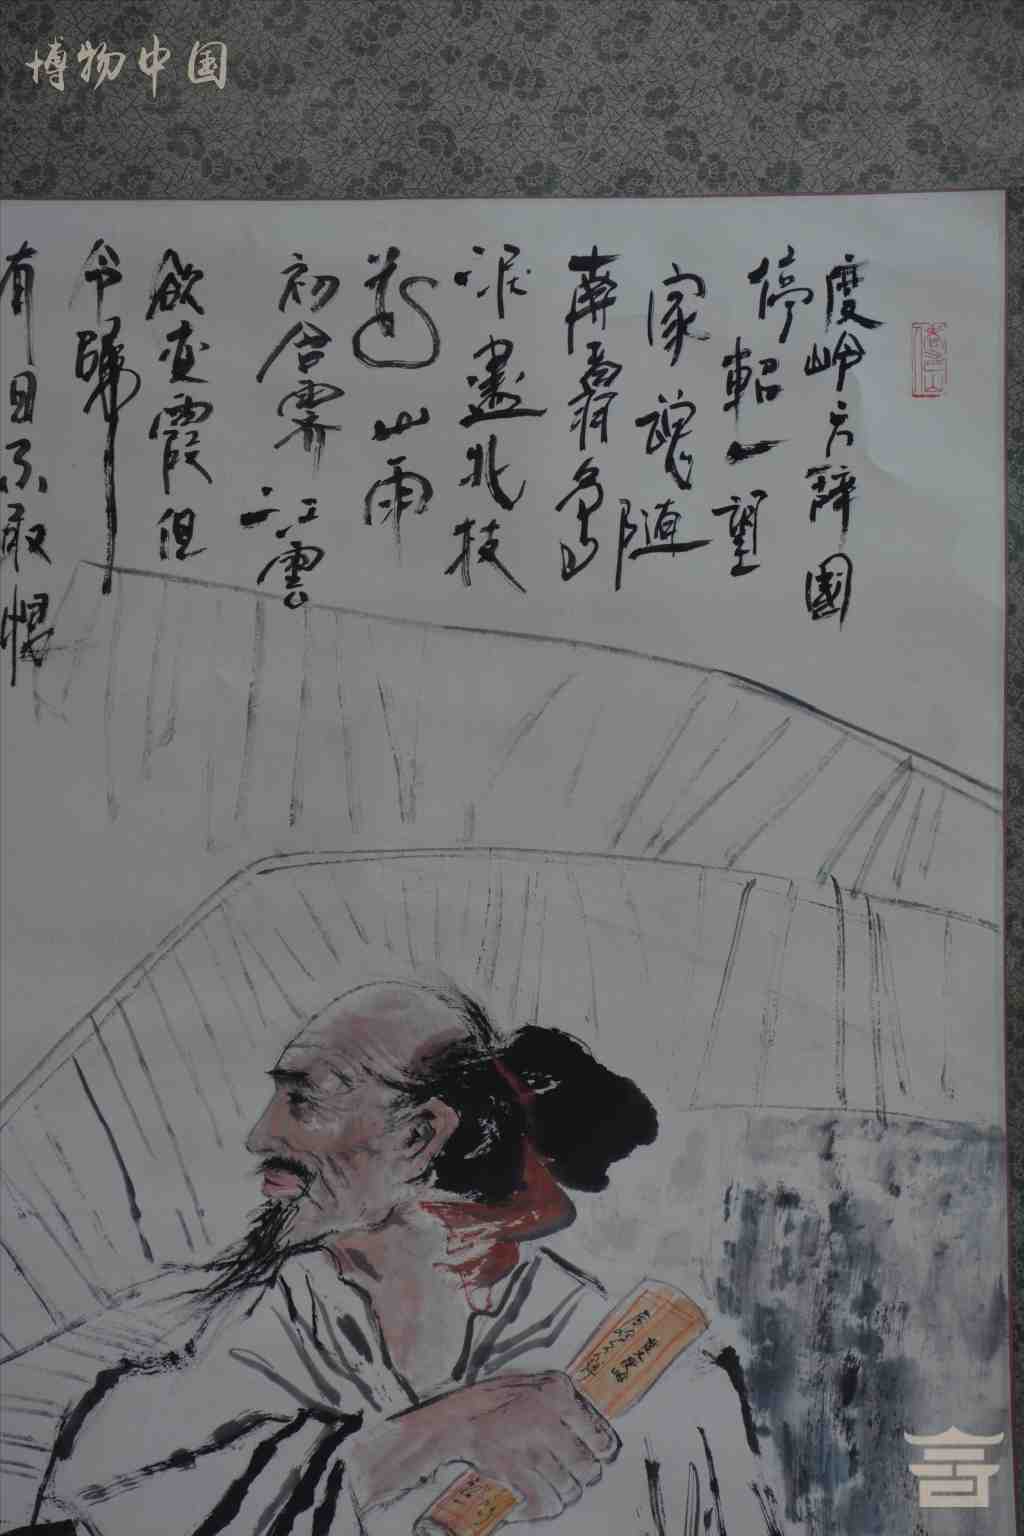 博物中国
度岭方辞國
停軺一望
家魂随
南翥鳥
淚盡北枝
花山雨
初含霁江雲
欲变霞但
令歸
有日不敢恨